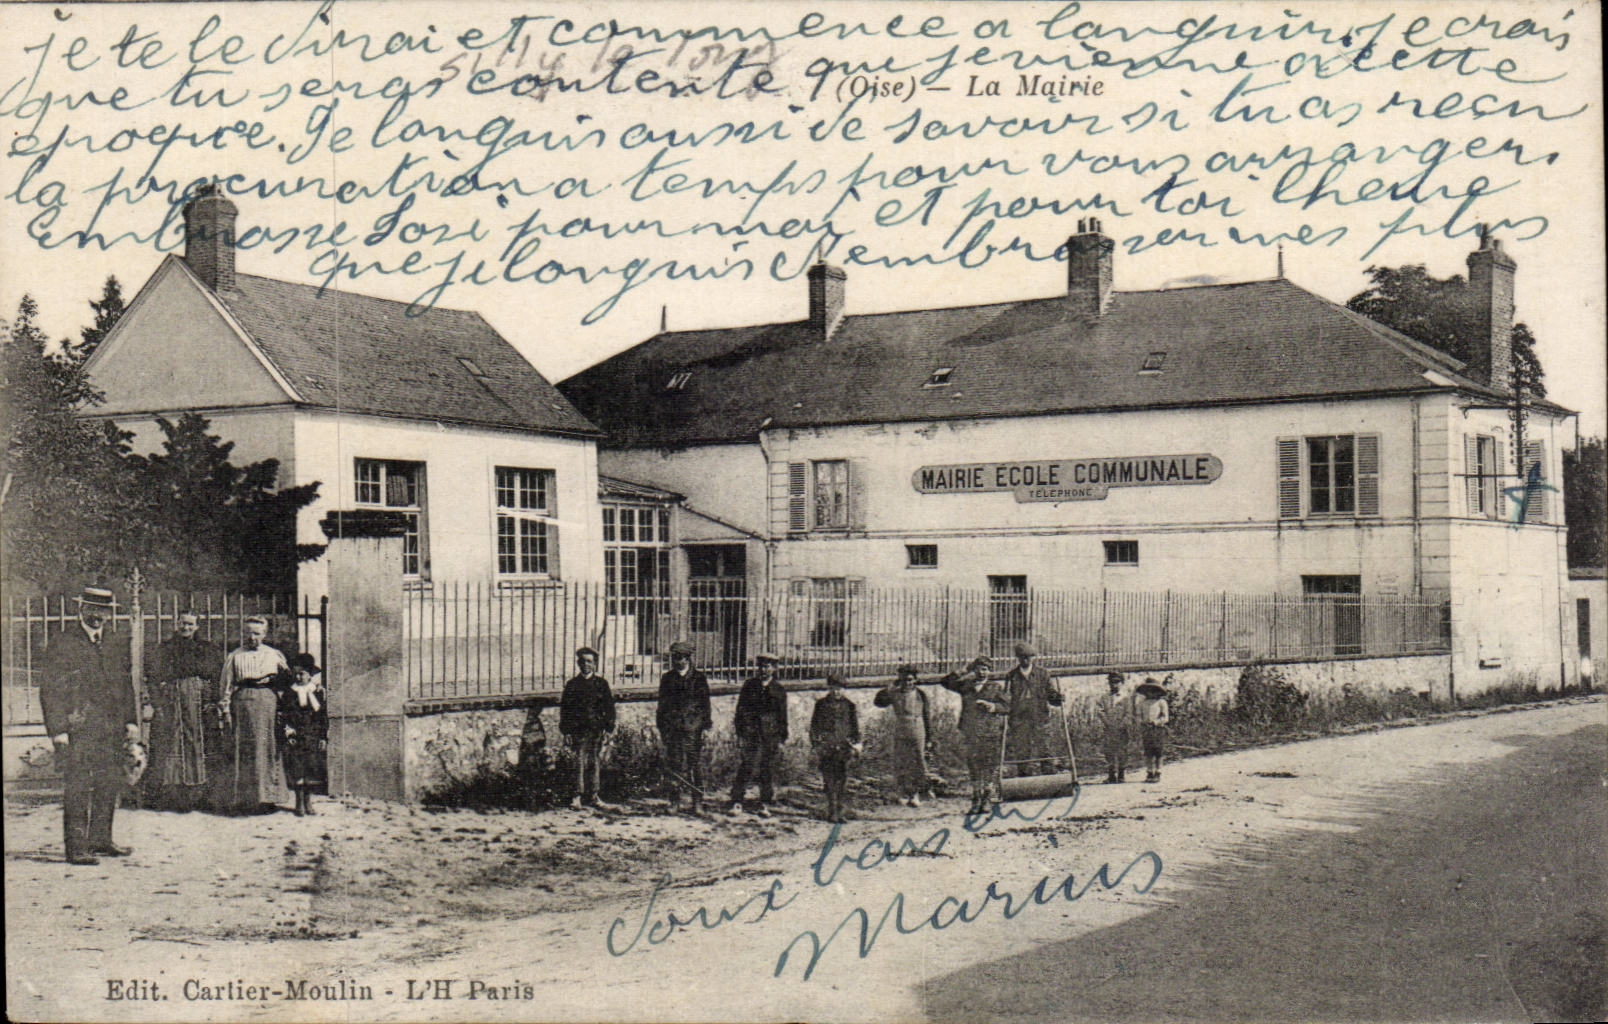 je te le dirai et commence a languir, je crois
que tu seras contente que je vienne a cette
epoque. Je languis aussi de savoir si tu as reçu
la procuration a temps pour vous arranger.
Embrasse José pour moi et pour toi l'heure
que je languis d'embrasser mes plus
(Oise) — La Mairie
MAIRIE ÉCOLE COMMUNALE
TÉLÉPHONE
doux baisers
Marius
Edit. Cartier-Moulin - L'H Paris